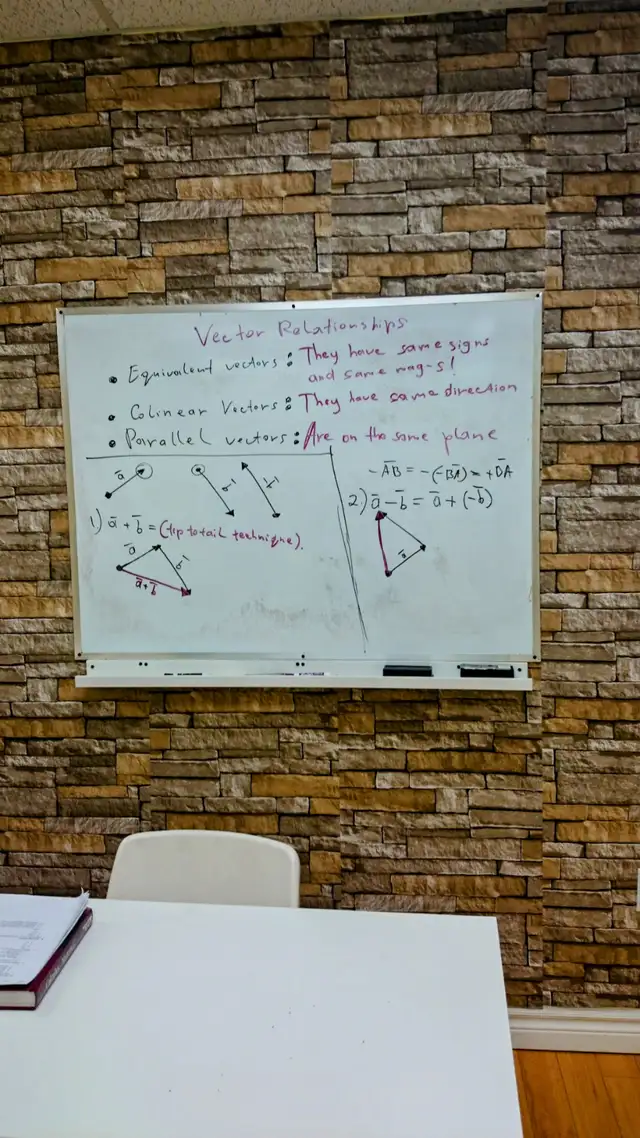 Vector Relationships
• Equivalent vectors: They have same signs
and same mag-s!
• Colinear Vectors: They have same direction
• Parallel vectors: Are on the same plane
a̅
b̅
-b̅
1) a̅ + b̅ = (tip to tail technique).
a̅
b̅
a̅+b̅
-A̅B̅ = -(-B̅A̅) = +B̅A̅
2.) a̅ - b̅ = a̅ + (-b̅)
a̅